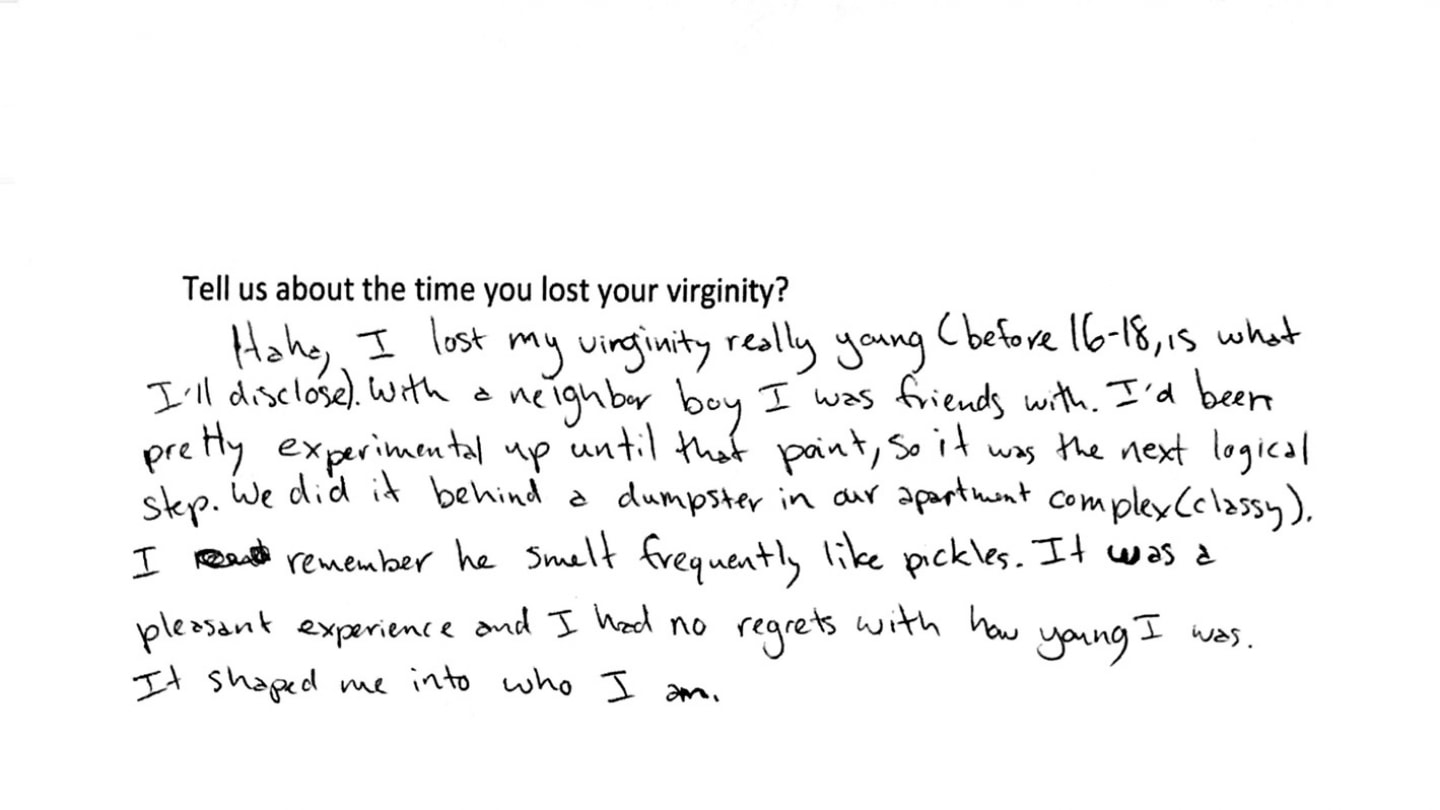 Tell us about the time you lost your virginity?
Haha, I lost my virginity really young (before 16-18, is what
I'll disclose). With a neighbor boy I was friends with. I'd been
pretty experimental up until that point, so it was the next logical
step. We did it behind a dumpster in our apartment complex (classy).
I remember he smelt frequently like pickles. It was a
pleasant experience and I had no regrets with how young I was.
It shaped me into who I am.